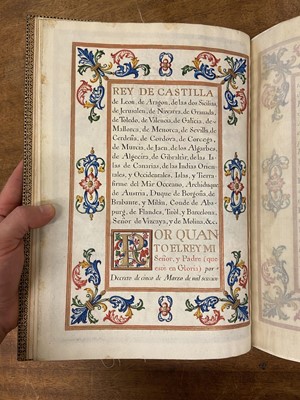 REY DE CASTILLA
de Leon, de Aragon, de las dos Sicilias,
de Jerusalen, de Navarra, de Granada,
de Toledo, de Valencia, de Galicia, de
Mallorca, de Menorca, de Sevilla, de
Cerdeña, de Cordova, de Corcega,
de Murcia, de Jaen, de los Algarbes,
de Algecira, de Gibraltar, de las Is-
las de Canarias, de las Indias Orien-
tales, y Occidentales, Islas, y Tierra
firme del Mar Occeano, Archiduque
de Austria, Duque de Borgoña, de
Brabante, y Milán, Conde de Abs-
purg, de Flandes, Tiròl, y Barcelona,
Señor de Vizcaya, y de Molina, &c.
POR QUAN
TO EL REY MI
Señor, y Padre (que
està en Gloria) por
Decreto de cinco de Marzo de mil